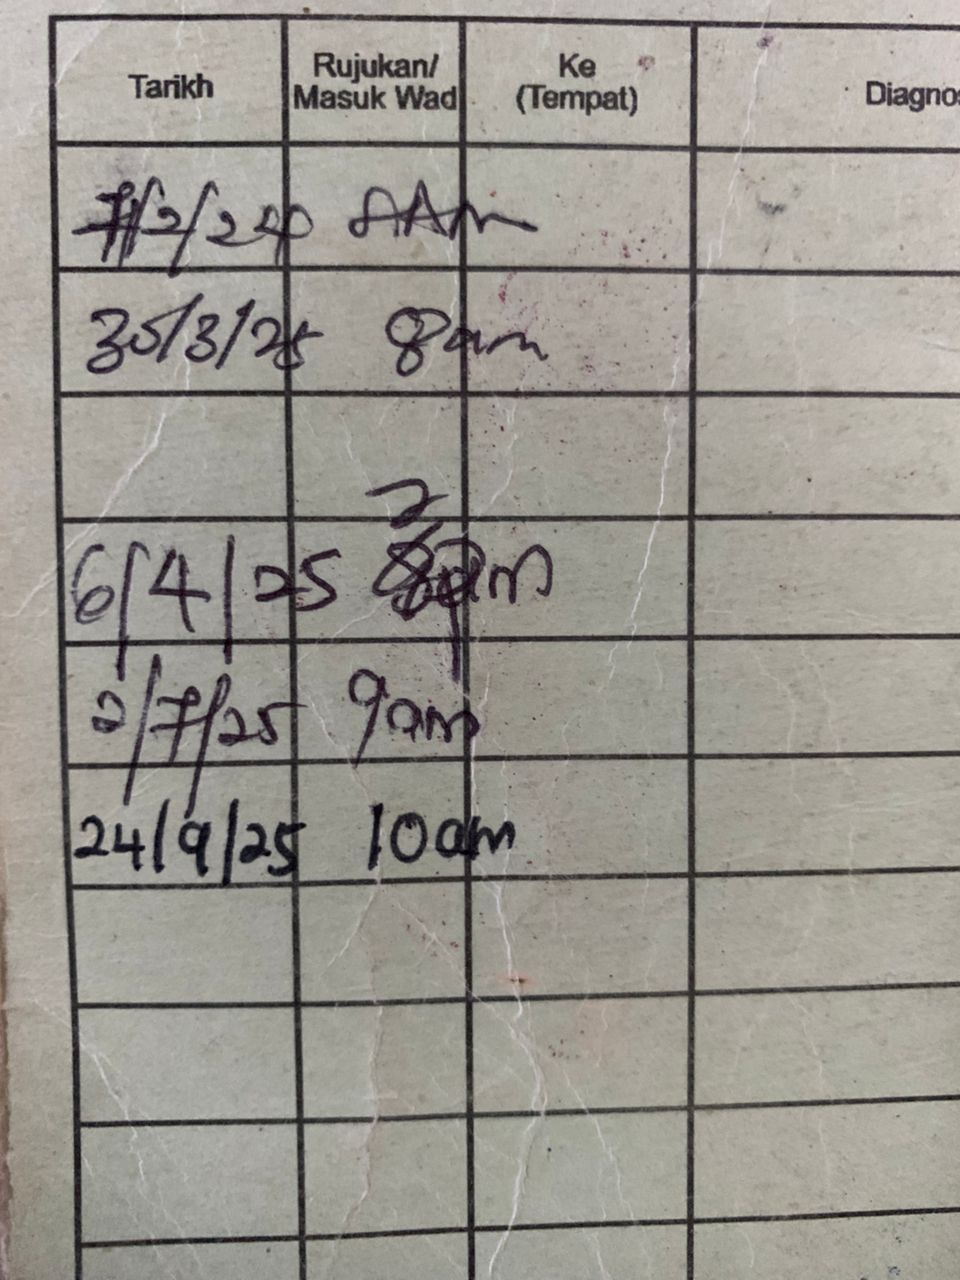 Tarikh Rujukan/ Masuk Wad Ke (Tempat) Diagnos
8Am
30/3/25 8am
6/4/25
2/7/25 9am
24/9/25 10am